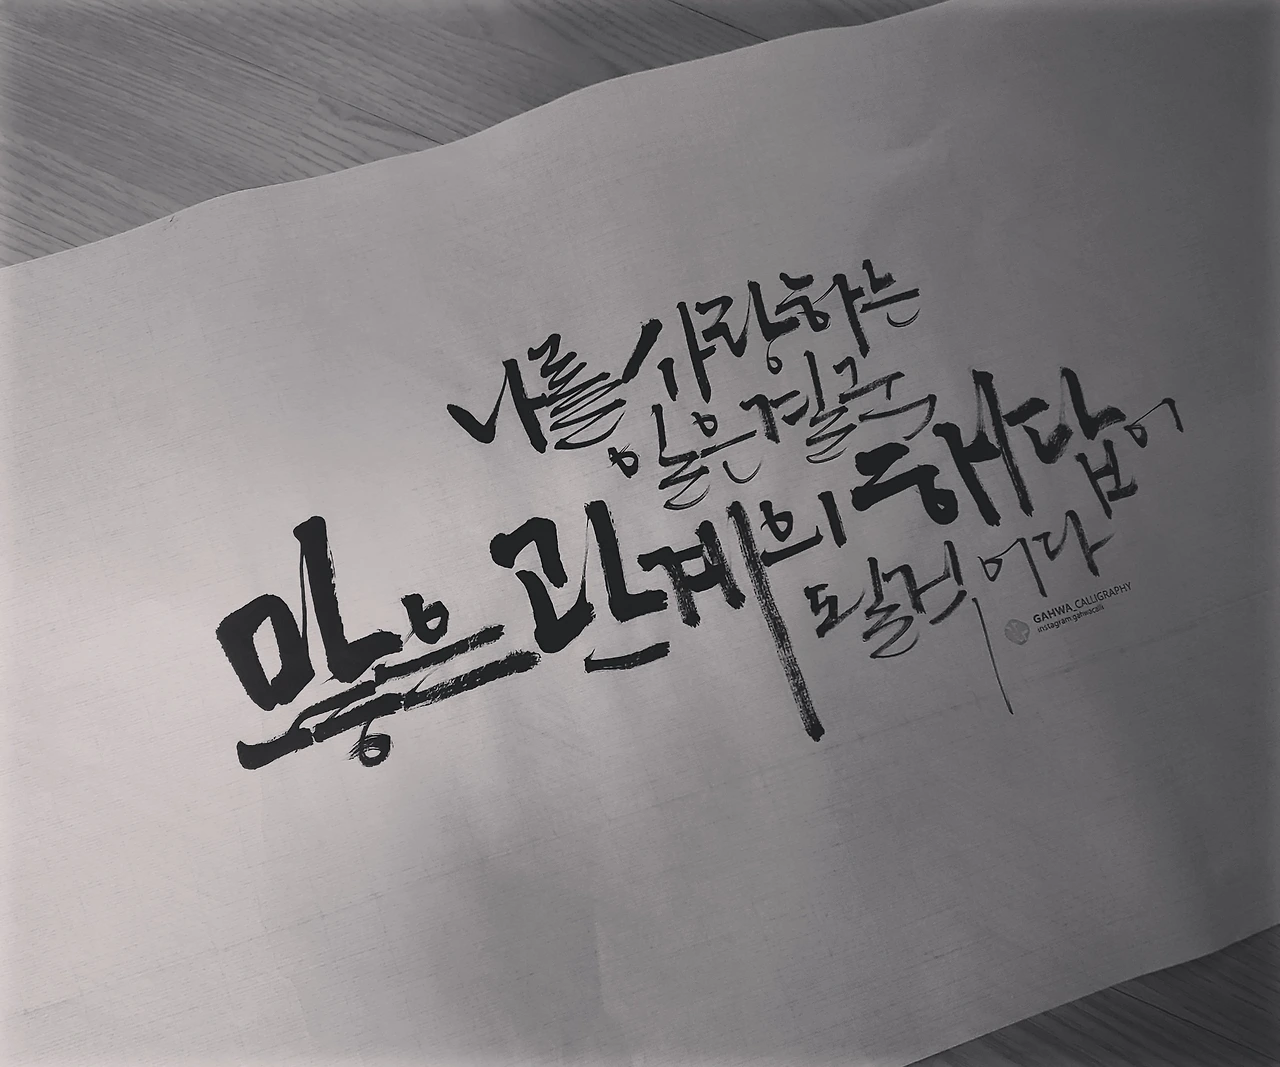 나를 사랑하는
일은 결국
많은 관계의 해답이
될 것이다
GAHWA_CALLIGRAPHY
instagram:gahwacalli